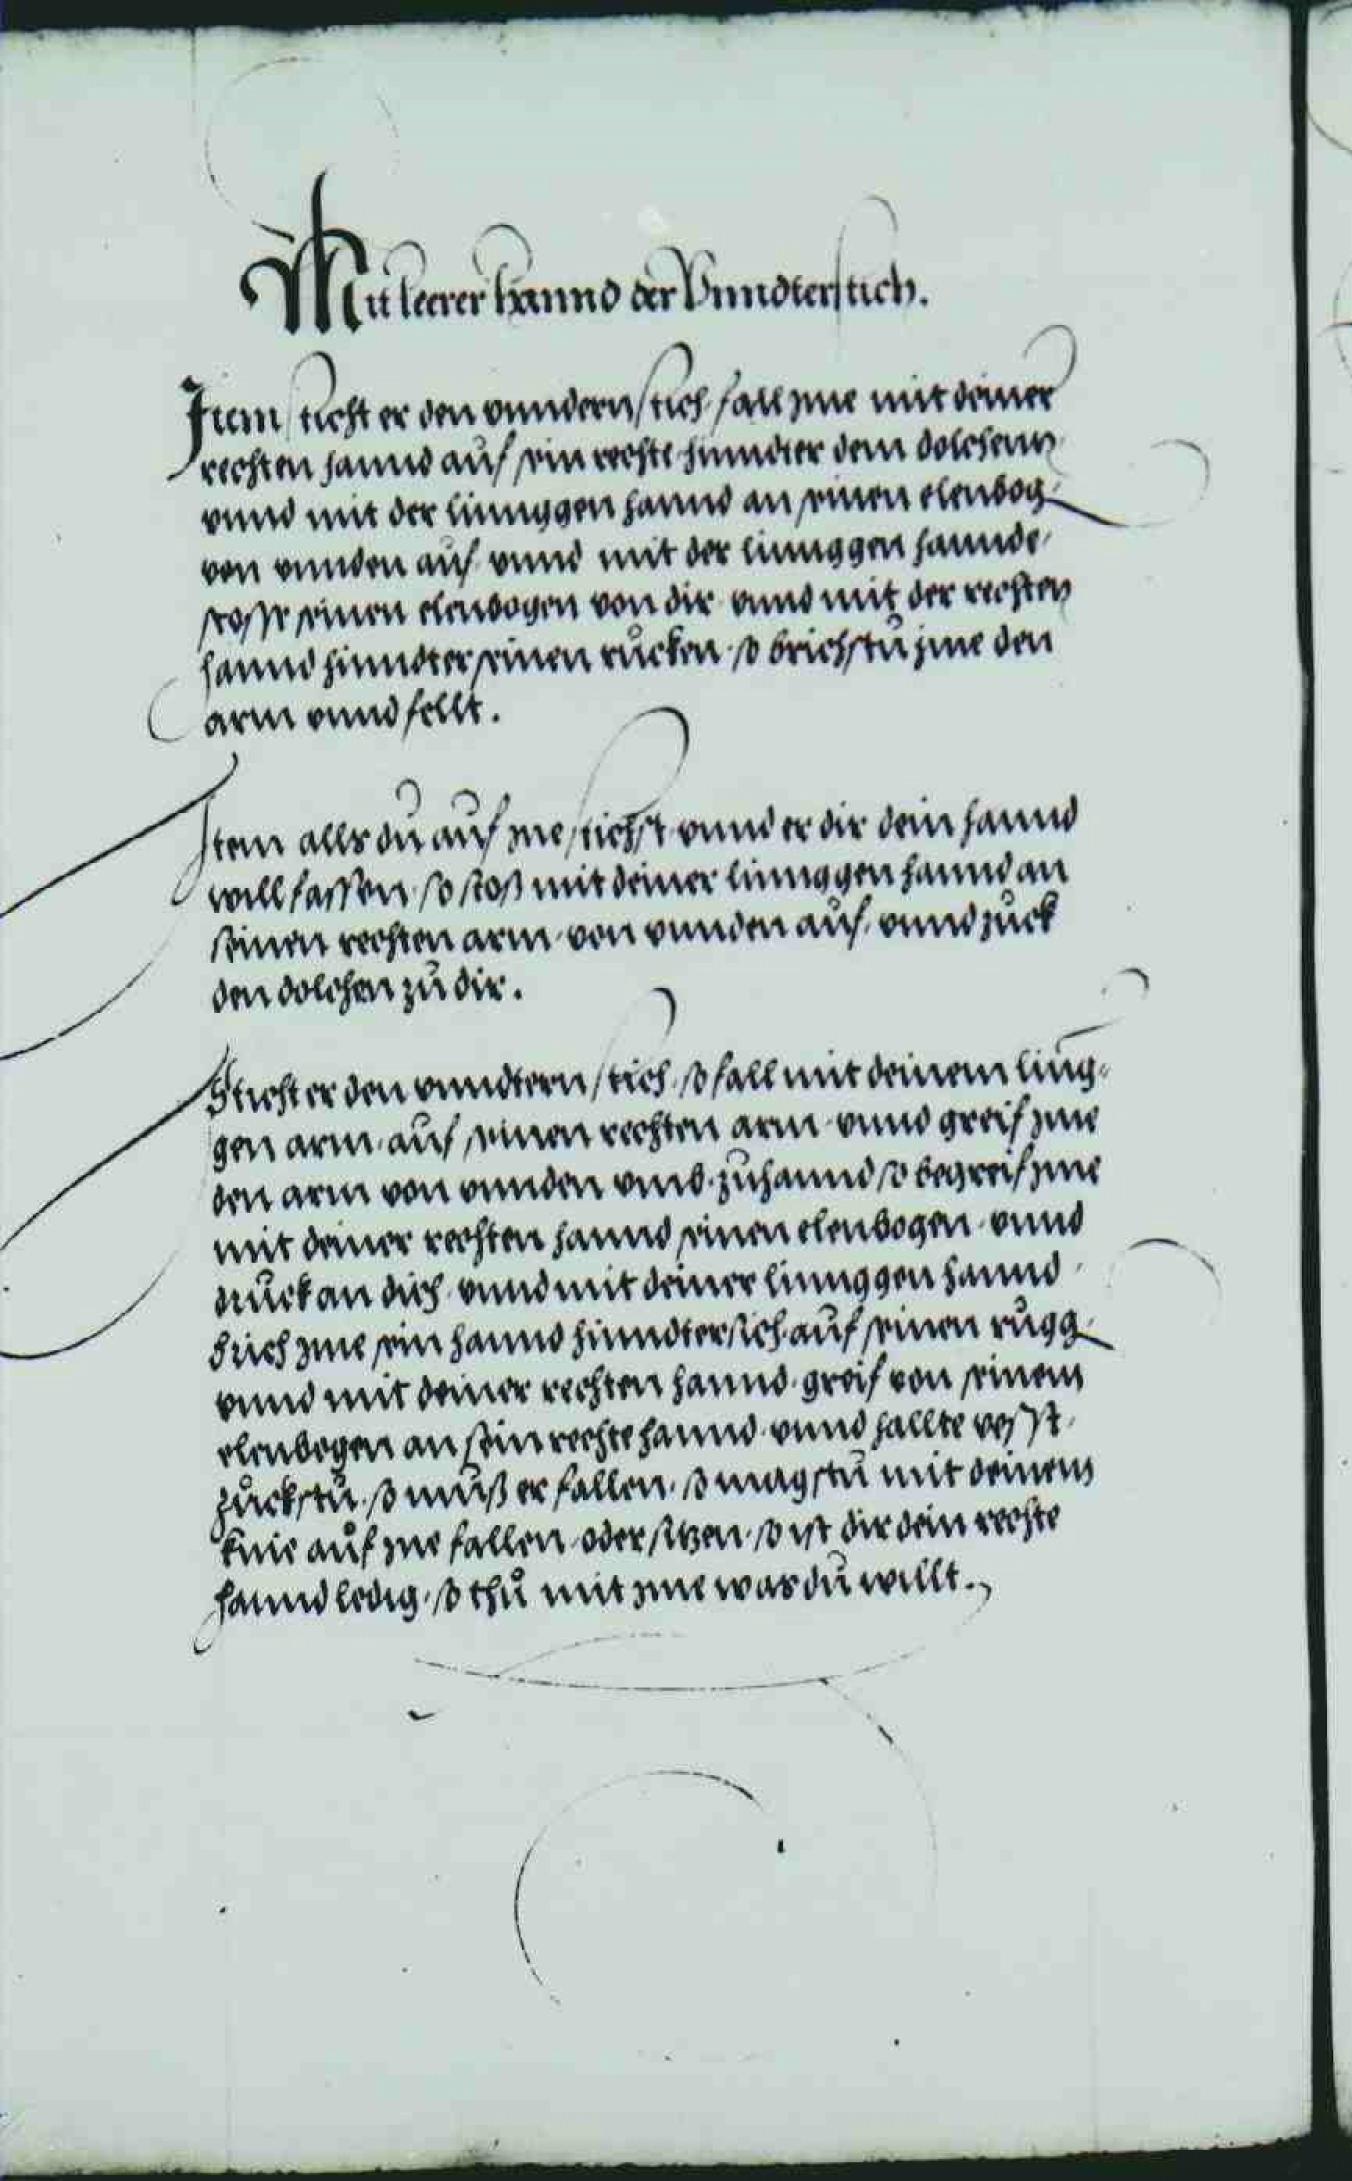 Mit leerer hannd der Vnndterstich.
Item sticht er den vnndern stich, fall jme mit deiner
rechten hannd auf sein rechte hinndter dem dolchenn,
vnnd mit der linnggen hannd an seinen elenbog,
von vnnden auf, vnnd mit der linnggen hannde,
stosse seinen elenbogen von dir, vnnd mit der rechten
hannd hinndter seinen růcken, so brichstů jme den
arm vnnd fellt.
Item alls du auf jne stichst, vnnd er dir dein hannd
will fassen, so stoß mit deiner linnggen hannd an
seinen rechten arm, von vnnden auf, vnnd zuck
den dolchen zů dir.
Sticht er den vnndtern stich, so fall mit deinem ling-
gen arm, auf seinen rechten arm, vnnd greif jme
den arm von vnnden vmb, zuhannd so begreif jme
mit deiner rechten hannd seinen elenbogen, vnnd
druck an dich, vnnd mit deiner linnggen hannd,
drich jme sein hannd hinndtersich, auf seinen rugg,
vnnd mit deiner rechten hannd, greif von seinem
elenbogen an sein rechte hannd, vnnd hallte vesst,
zuckstů, so můß er fallen, so magstů mit deinem
knie auf jne fallen, oder sitzen, so ist dir dein rechte
hannd ledig, so thů mit jme was dů willt.